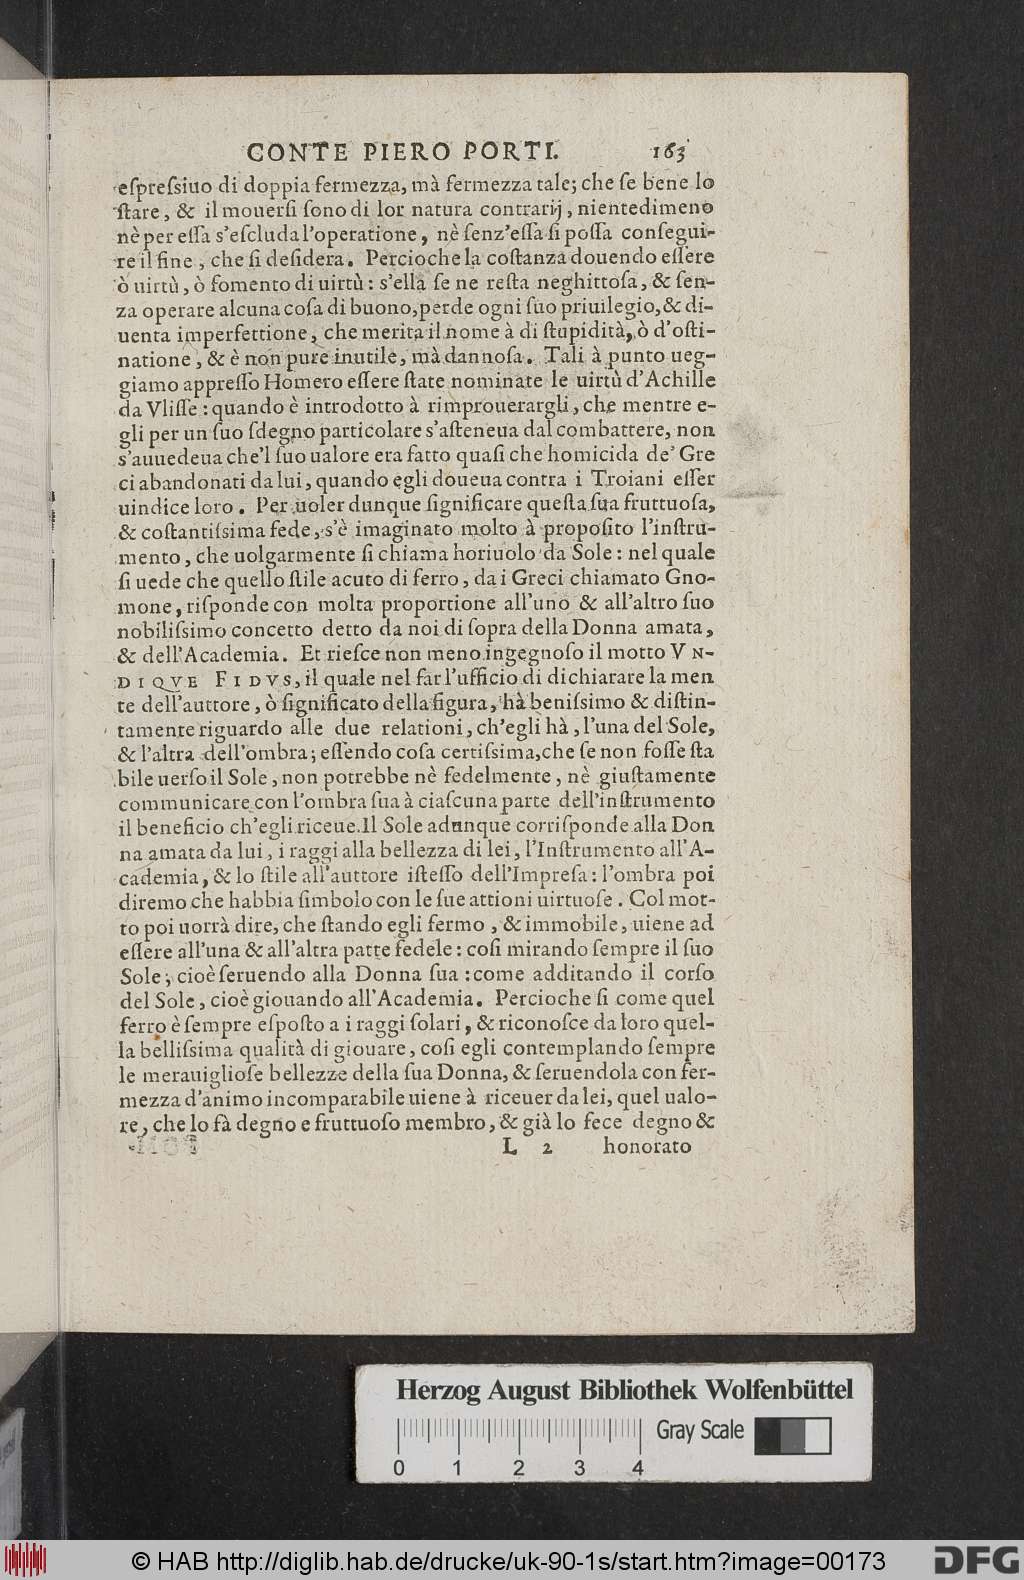 CONTE PIERO PORTI. 163
eſpreſsiuo di doppia fermezza, mà fermezza tale; che ſe bene lo
ſtare, & il mouerſi ſono di lor natura contrarij, nientedimeno
nè per eſſa s'eſcluda l'operatione, nè ſenz'eſſa ſi poſſa conſegui-
re il fine, che ſi deſidera. Percioche la coſtanza douendo eſſere
ò uirtù, ò fomento di uirtù: s'ella ſe ne reſta neghittoſa, & ſen-
za operare alcuna coſa di buono, perde ogni ſuo priuilegio, & di-
uenta imperfettione, che merita il nome à di ſtupidità, ò d'oſti-
natione, & è non pure inutile, mà dannoſa. Tali à punto ueg-
giamo appreſſo Homero eſſere ſtate nominate le uirtù d'Achille
da Vliſſe: quando è introdotto à rimprouerargli, che mentre e-
gli per un ſuo ſdegno particolare s'aſteneua dal combattere, non
s'auuedeua che'l ſuo ualore era fatto quaſi che homicida de' Gre
ci abandonati da lui, quando egli doueua contra i Troiani eſſer
uindice loro. Per uoler dunque ſignificare queſta ſua fruttuoſa,
& coſtantiſsima fede, s'è imaginato molto à propoſito l'inſtru-
mento, che uolgarmente ſi chiama horiuolo da Sole: nel quale
ſi uede che quello ſtile acuto di ferro, da i Greci chiamato Gno-
mone, riſponde con molta proportione all'uno & all'altro ſuo
nobiliſsimo concetto detto da noi di ſopra della Donna amata,
& dell'Academia. Et rieſce non meno ingegnoſo il motto VN-
DIQVE FIDVS, il quale nel far l'ufficio di dichiarare la men
te dell'auttore, ò ſignificato della figura, hà beniſsimo & diſtin-
tamente riguardo alle due relationi, ch'egli hà, l'una del Sole,
& l'altra dell'ombra; eſſendo coſa certiſsima, che ſe non foſſe ſta
bile uerſo il Sole, non potrebbe nè fedelmente, nè giuſtamente
communicare con l'ombra ſua à ciaſcuna parte dell'inſtrumento
il beneficio ch'egli riceue. Il Sole adunque corriſponde alla Don
na amata da lui, i raggi alla bellezza di lei, l'Inſtrumento all'A-
cademia, & lo ſtile all'auttore iſteſſo dell'Impreſa: l'ombra poi
diremo che habbia ſimbolo con le ſue attioni uirtuoſe. Col mot-
to poi uorrà dire, che ſtando egli fermo, & immobile, uiene ad
eſſere all'una & all'altra patte fedele: coſi mirando ſempre il ſuo
Sole; cioè ſeruendo alla Donna ſua: come additando il corſo
del Sole, cioè giouando all'Academia. Percioche ſi come quel
ferro è ſempre eſpoſto a i raggi ſolari, & riconoſce da loro quel-
la belliſsima qualità di giouare, coſi egli contemplando ſempre
le merauiglioſe bellezze della ſua Donna, & ſeruendola con fer-
mezza d'animo incomparabile uiene à riceuer da lei, quel ualo-
re, che lo fà degno e fruttuoſo membro, & già lo fece degno &
L 2 honorato
Herzog August Bibliothek Wolfenbüttel
Gray Scale
0 1 2 3 4
© HAB http://diglib.hab.de/drucke/uk-90-1s/start.htm?image=00173
DFG